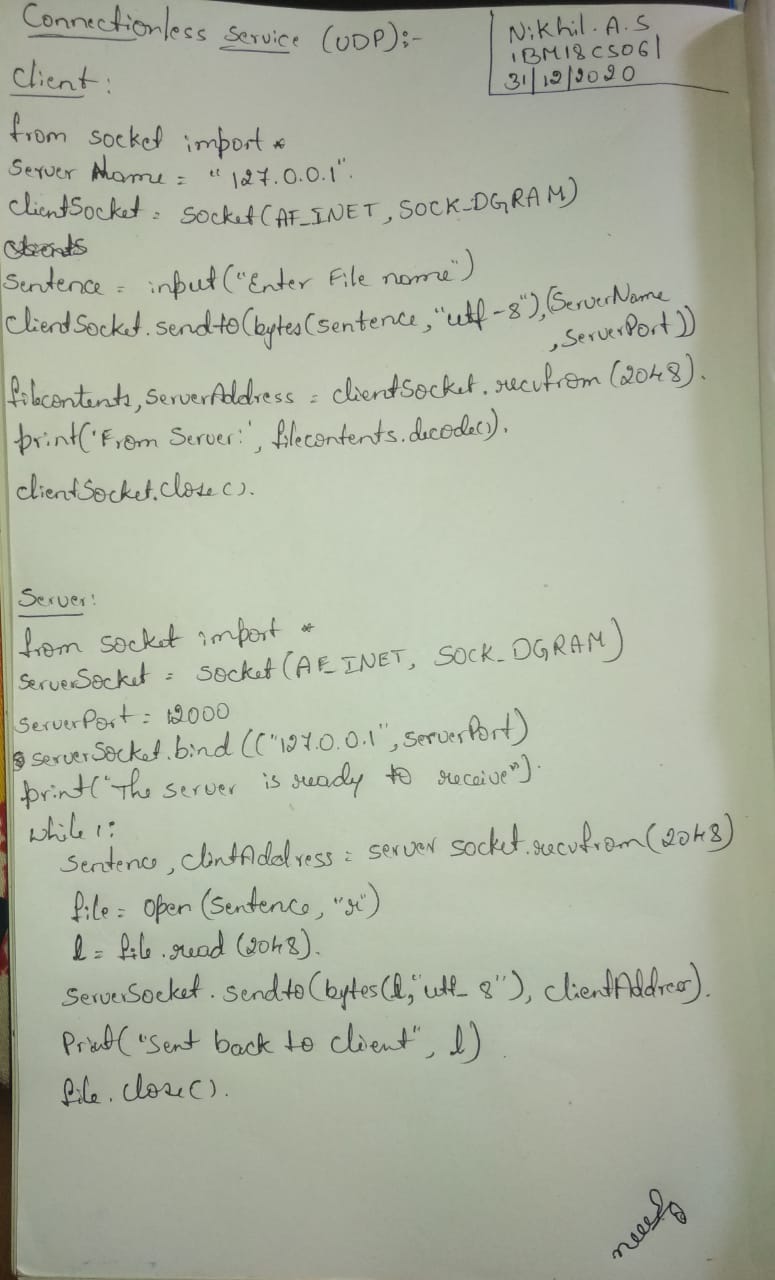 Connectionless Service (UDP):-
Nikhil. A. S
1BM18CS061
31/12/2020
Client:
from socket import *
Server Name = "127.0.0.1".
clientSocket = socket(AF_INET, SOCK_DGRAM)
Sentence = input("Enter File name")
ClientSocket.sendto(bytes(sentence,"utf-8"),(ServerName
,ServerPort))
filecontents, ServerAddress = clientSocket.recvfrom(2048).
print('From Server:', filecontents.decode()).
clientSocket.close().
Server:
from socket import *
ServerSocket = socket(AF_INET, SOCK_DGRAM)
ServerPort = 12000
serverSocket.bind(("127.0.0.1", ServerPort)
print("The server is ready to receive").
while 1:
Sentence, clintAddress = server socket.recvfrom(2048)
file = open(Sentence, "r")
l = file.read(2048).
ServerSocket.sendto(bytes(l,"utf_8"), clientAddress).
Print("Sent back to client", l)
file.close().